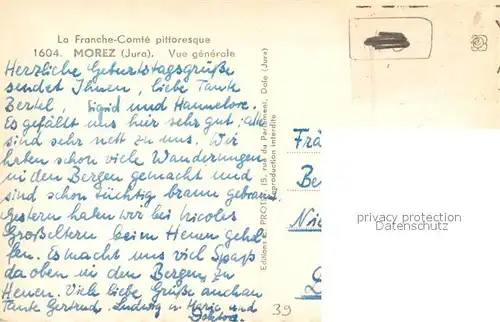 La Franche-Comté pittoresque
1604. MOREZ (Jura). Vue générale
Herzliche Geburtstagsgrüße
sendet Ihnen, liebe Tante
Bertel, Sigrid und Hannelore.
Es gefällt uns hier sehr gut; alle
sind sehr nett zu uns. Wir
haben schon viele Wanderungen
in den Bergen gemacht und
sind schon tüchtig braun gebrannt.
Gestern haben wir bei Nicoles
Großeltern beim Heuen gehol-
fen. Es macht uns viel Spaß
da oben in den Bergen zu
Heuen. Viele liebe Grüße auch an
Tante Gertrud, Ludwig u. Maria und
39
Editions E. PROST, 15, rue du Parlement, Dole (Jura)
Reproduction interdite
Frä
Be
Nie
privacy protection
Datenschutz